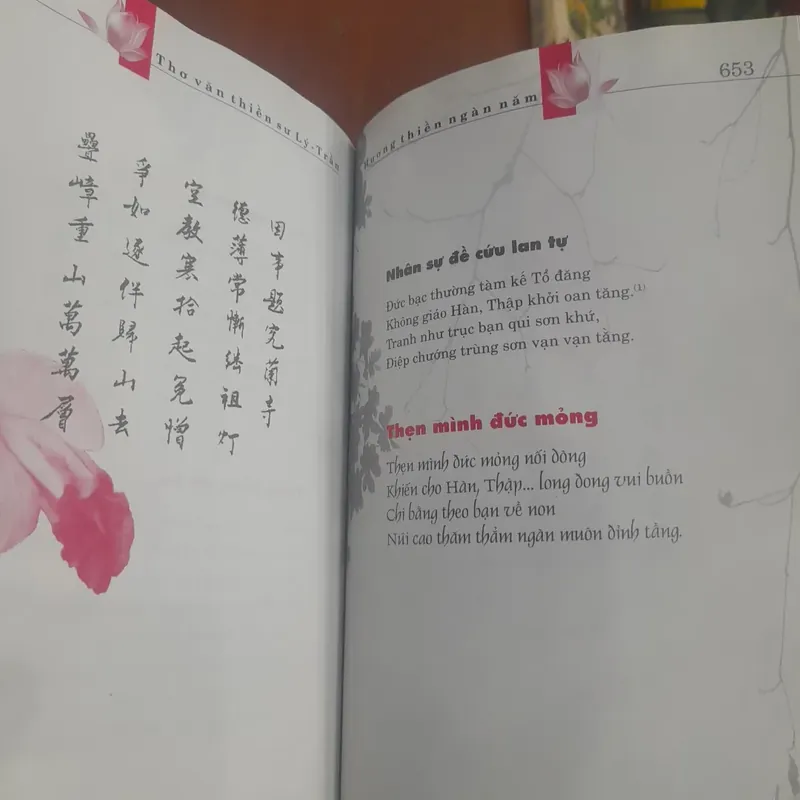 Thơ văn thiền sư Lý-Trần
因事題究蘭寺
德薄常慚継祖灯
空教寒拾起冤憎
爭如逐伴歸山去
疊嶂重山萬萬層
Hương thiền ngàn năm
653
Nhân sự đề cứu lan tự
Đức bạc thường tàm kế Tổ đăng
Không giáo Hàn, Thập khởi oan tăng.(1)
Tranh như trục bạn qui sơn khứ,
Điệp chướng trùng sơn vạn vạn tằng.
Thẹn mình đức mỏng
Thẹn mình đức mỏng nối dòng
Khiến cho Hàn, Thập... long đong vui buồn
Chi bằng theo bạn về non
Núi cao thăm thẳm ngàn muôn đỉnh tầng.